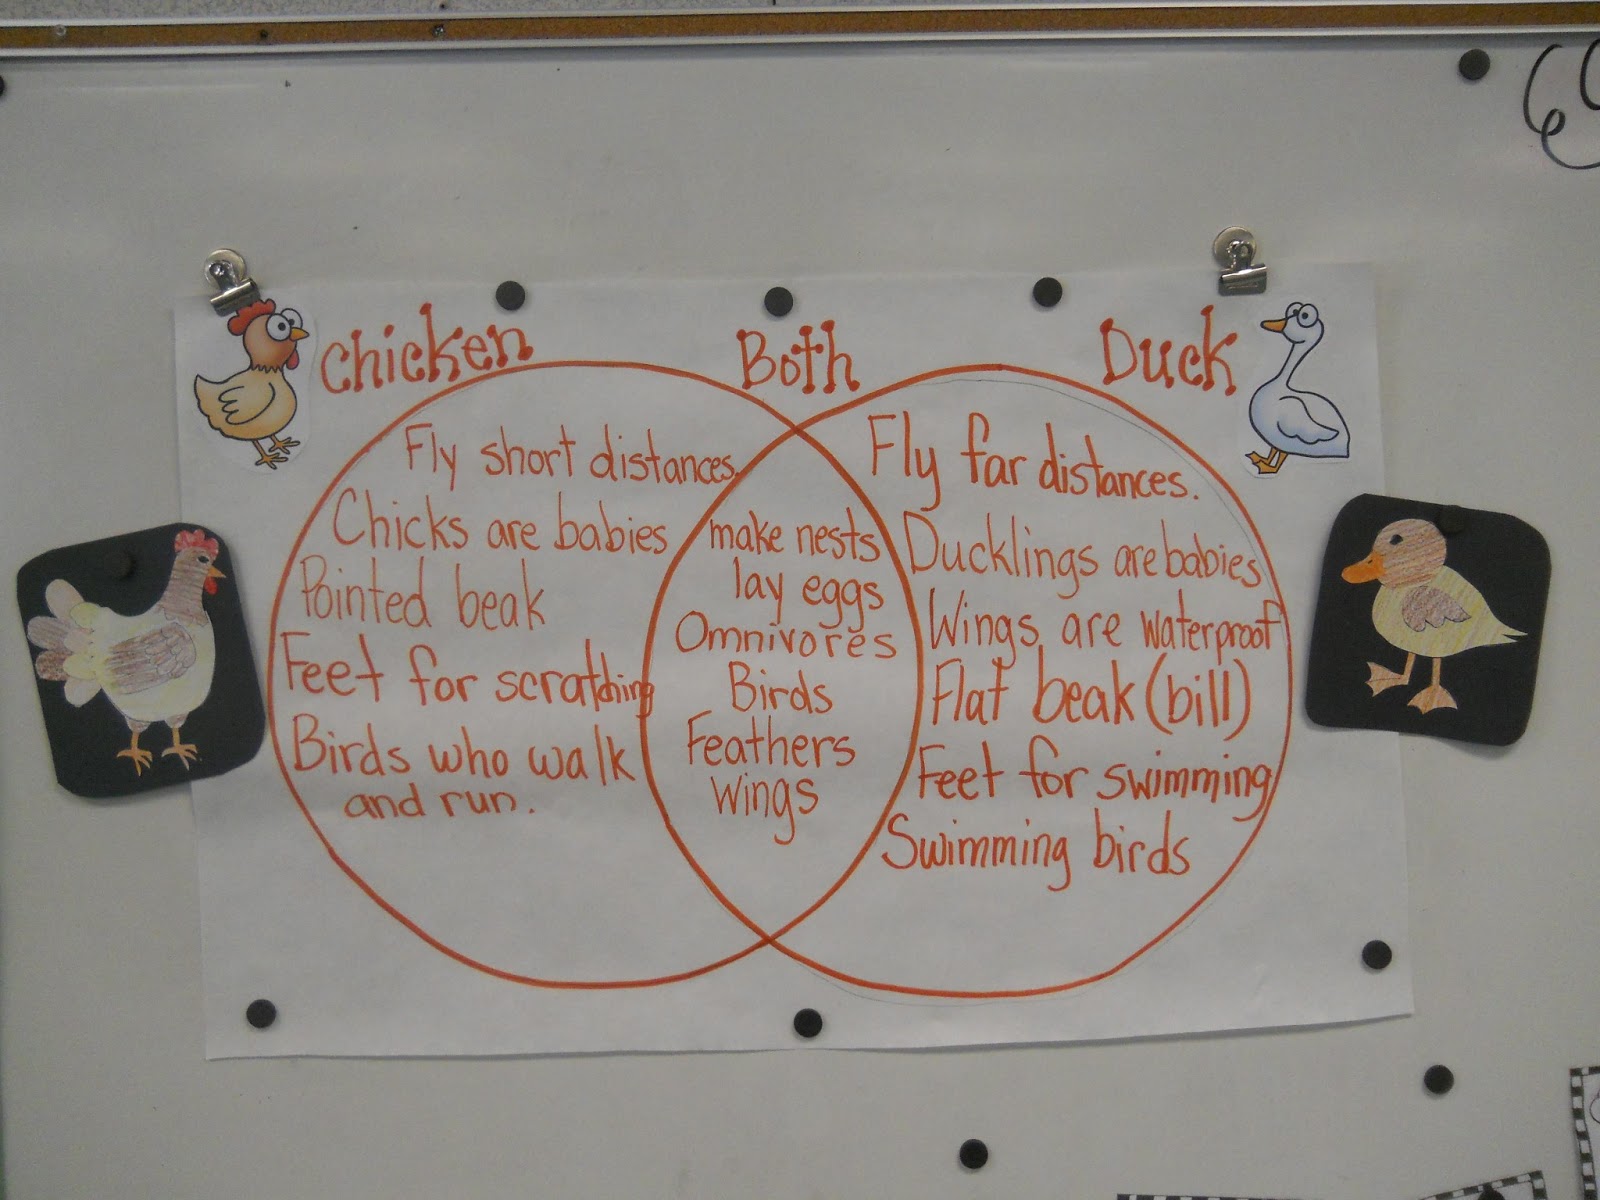 Chicken
Both
Duck
Fly short distances.
Chicks are babies
Pointed beak
Feet for scratching
Birds who walk
and run.
make nests
lay eggs
Omnivores
Birds
Feathers
Wings
Fly far distances.
Ducklings are babies
Wings are waterproof
Flat beak (bill)
Feet for swimming
Swimming birds